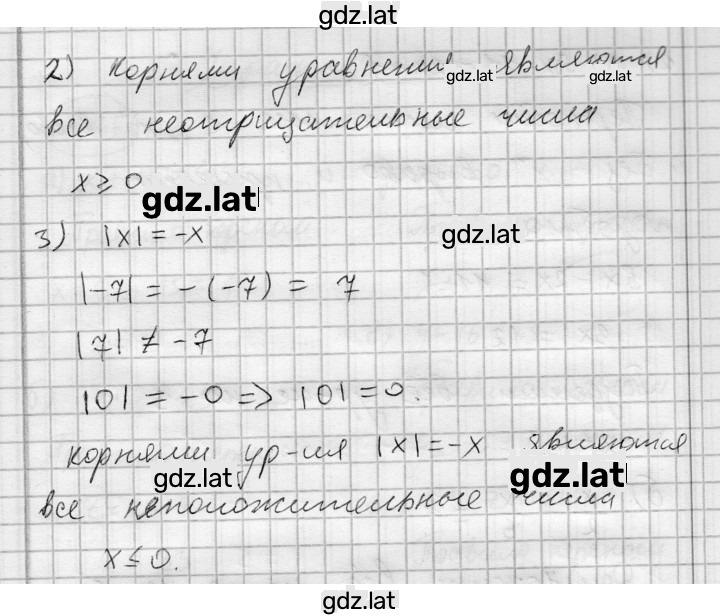 gdz.lat
2) Корнями уравнения являются
gdz.lat gdz.lat
все неотрицательные числа
x ≥ 0
gdz.lat
3) |x| = -x
gdz.lat
|-7| = -(-7) = 7
|7| ≠ -7
|0| = -0 => |0| = 0.
корнями ур-ия |x| = -x являются
gdz.lat gdz.lat
все неположительные числа
x ≤ 0.
gdz.lat